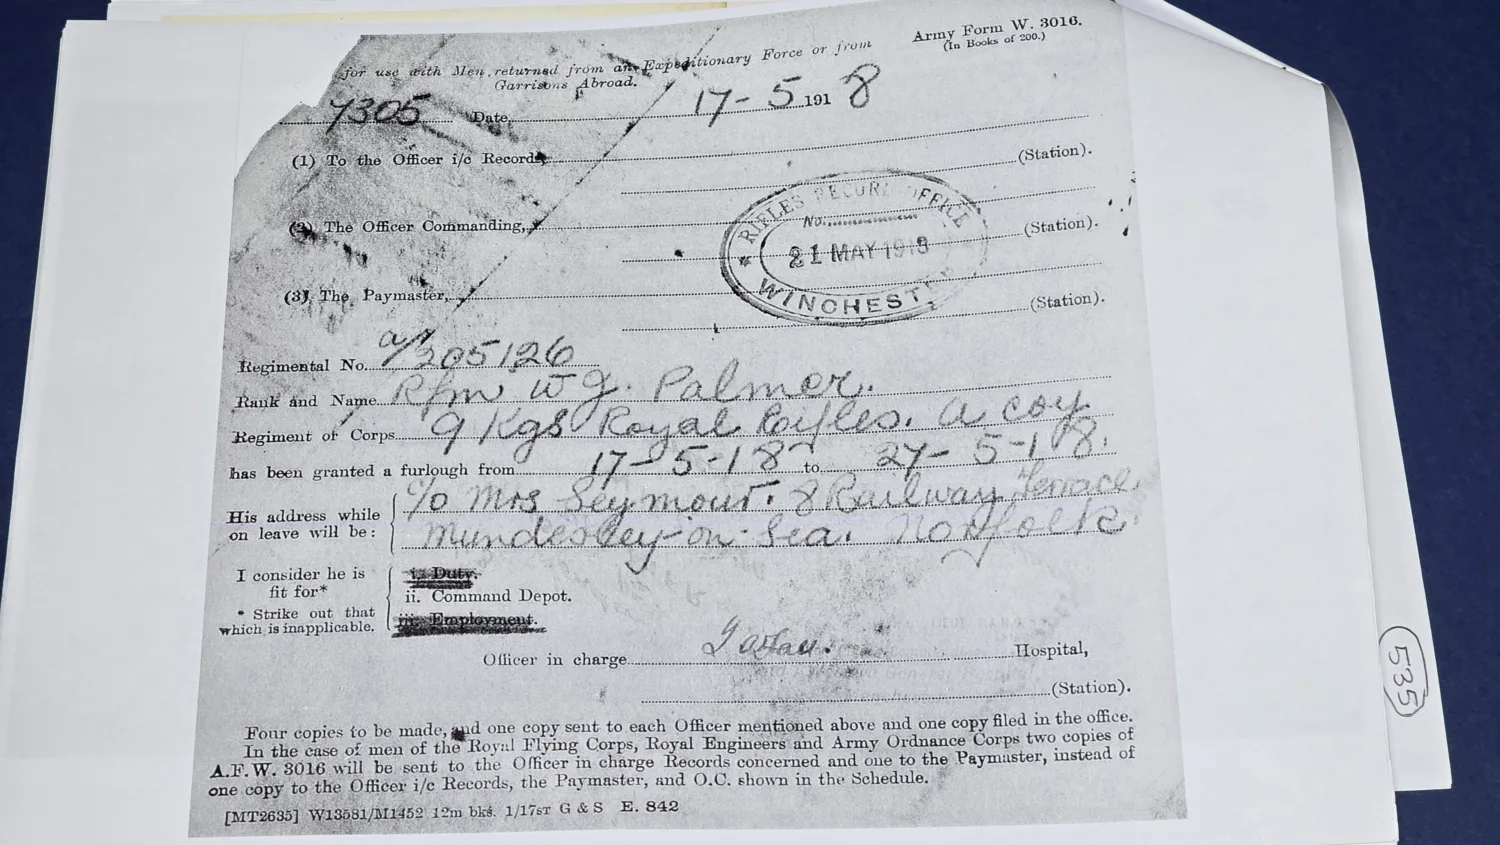 Army Form W. 3016.
(In Books of 200.)
for use with Men returned from an Expeditionary Force or from
Garrisons Abroad.
7305 Date 17-5 1918
(1) To the Officer i/c Records
(Station).
(2) The Officer Commanding,
(Station).
RIFLES RECORD OFFICE
No.
21 MAY 1918
WINCHEST
(3) The Paymaster,
(Station).
Regimental No. a/205126
Rank and Name Rfm W J. Palmer.
Regiment or Corps 9 Kgs Royal Rifles. A Coy
has been granted a furlough from 17-5-18 to 27-5-18.
His address while on leave will be: c/o Mrs Seymour. 8 Railway Terrace.
Mundesley-on-Sea. Norfolk
I consider he is fit for*
* Strike out that which is inapplicable.
i. Duty.
ii. Command Depot.
iii. Employment.
Officer in charge Hospital,
(Station).
Four copies to be made, and one copy sent to each Officer mentioned above and one copy filed in the office.
In the case of men of the Royal Flying Corps, Royal Engineers and Army Ordnance Corps two copies of
A.F.W. 3016 will be sent to the Officer in charge Records concerned and one to the Paymaster, instead of
one copy to the Officer i/c Records, the Paymaster, and O.C. shown in the Schedule.
[MT2635] W13581/M1452 12m bks. 1/17ST G & S E. 842
535